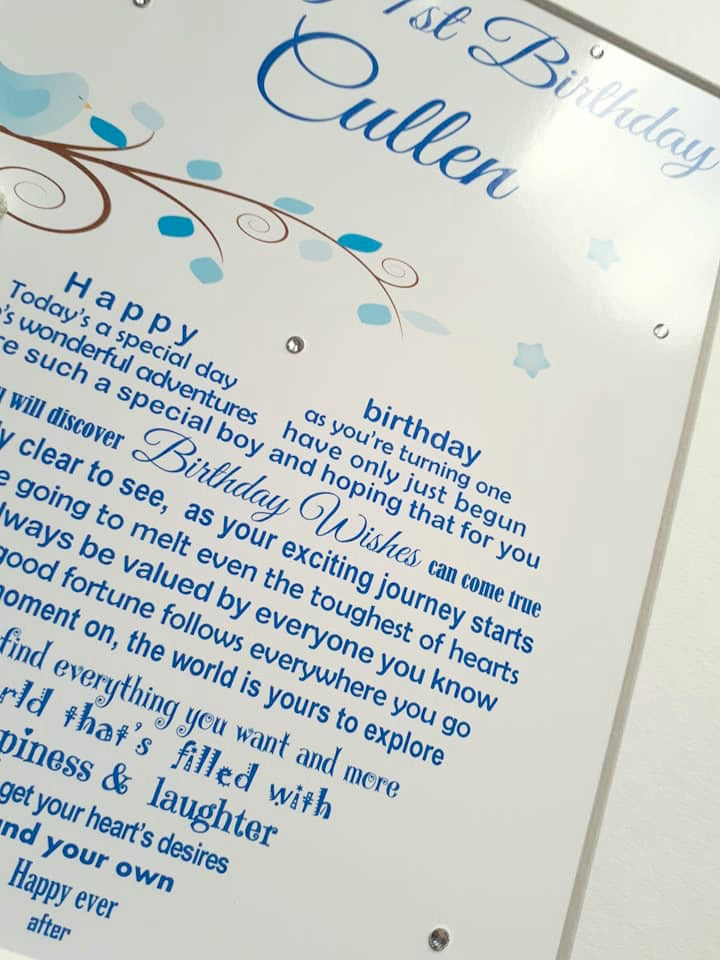 1st Birthday
Cullen
Happy
birthday
Today's a special day
as you're turning one
wonderful adventures
have only just begun
such a special boy and hoping that for you
will discover Birthday Wishes can come true
clear to see, as your exciting journey starts
going to melt even the toughest of hearts
be valued by everyone you know
good fortune follows everywhere you go
on, the world is yours to explore
find everything you want and more
that's filled with
& laughter
get your heart's desires
your own
Happy ever
after